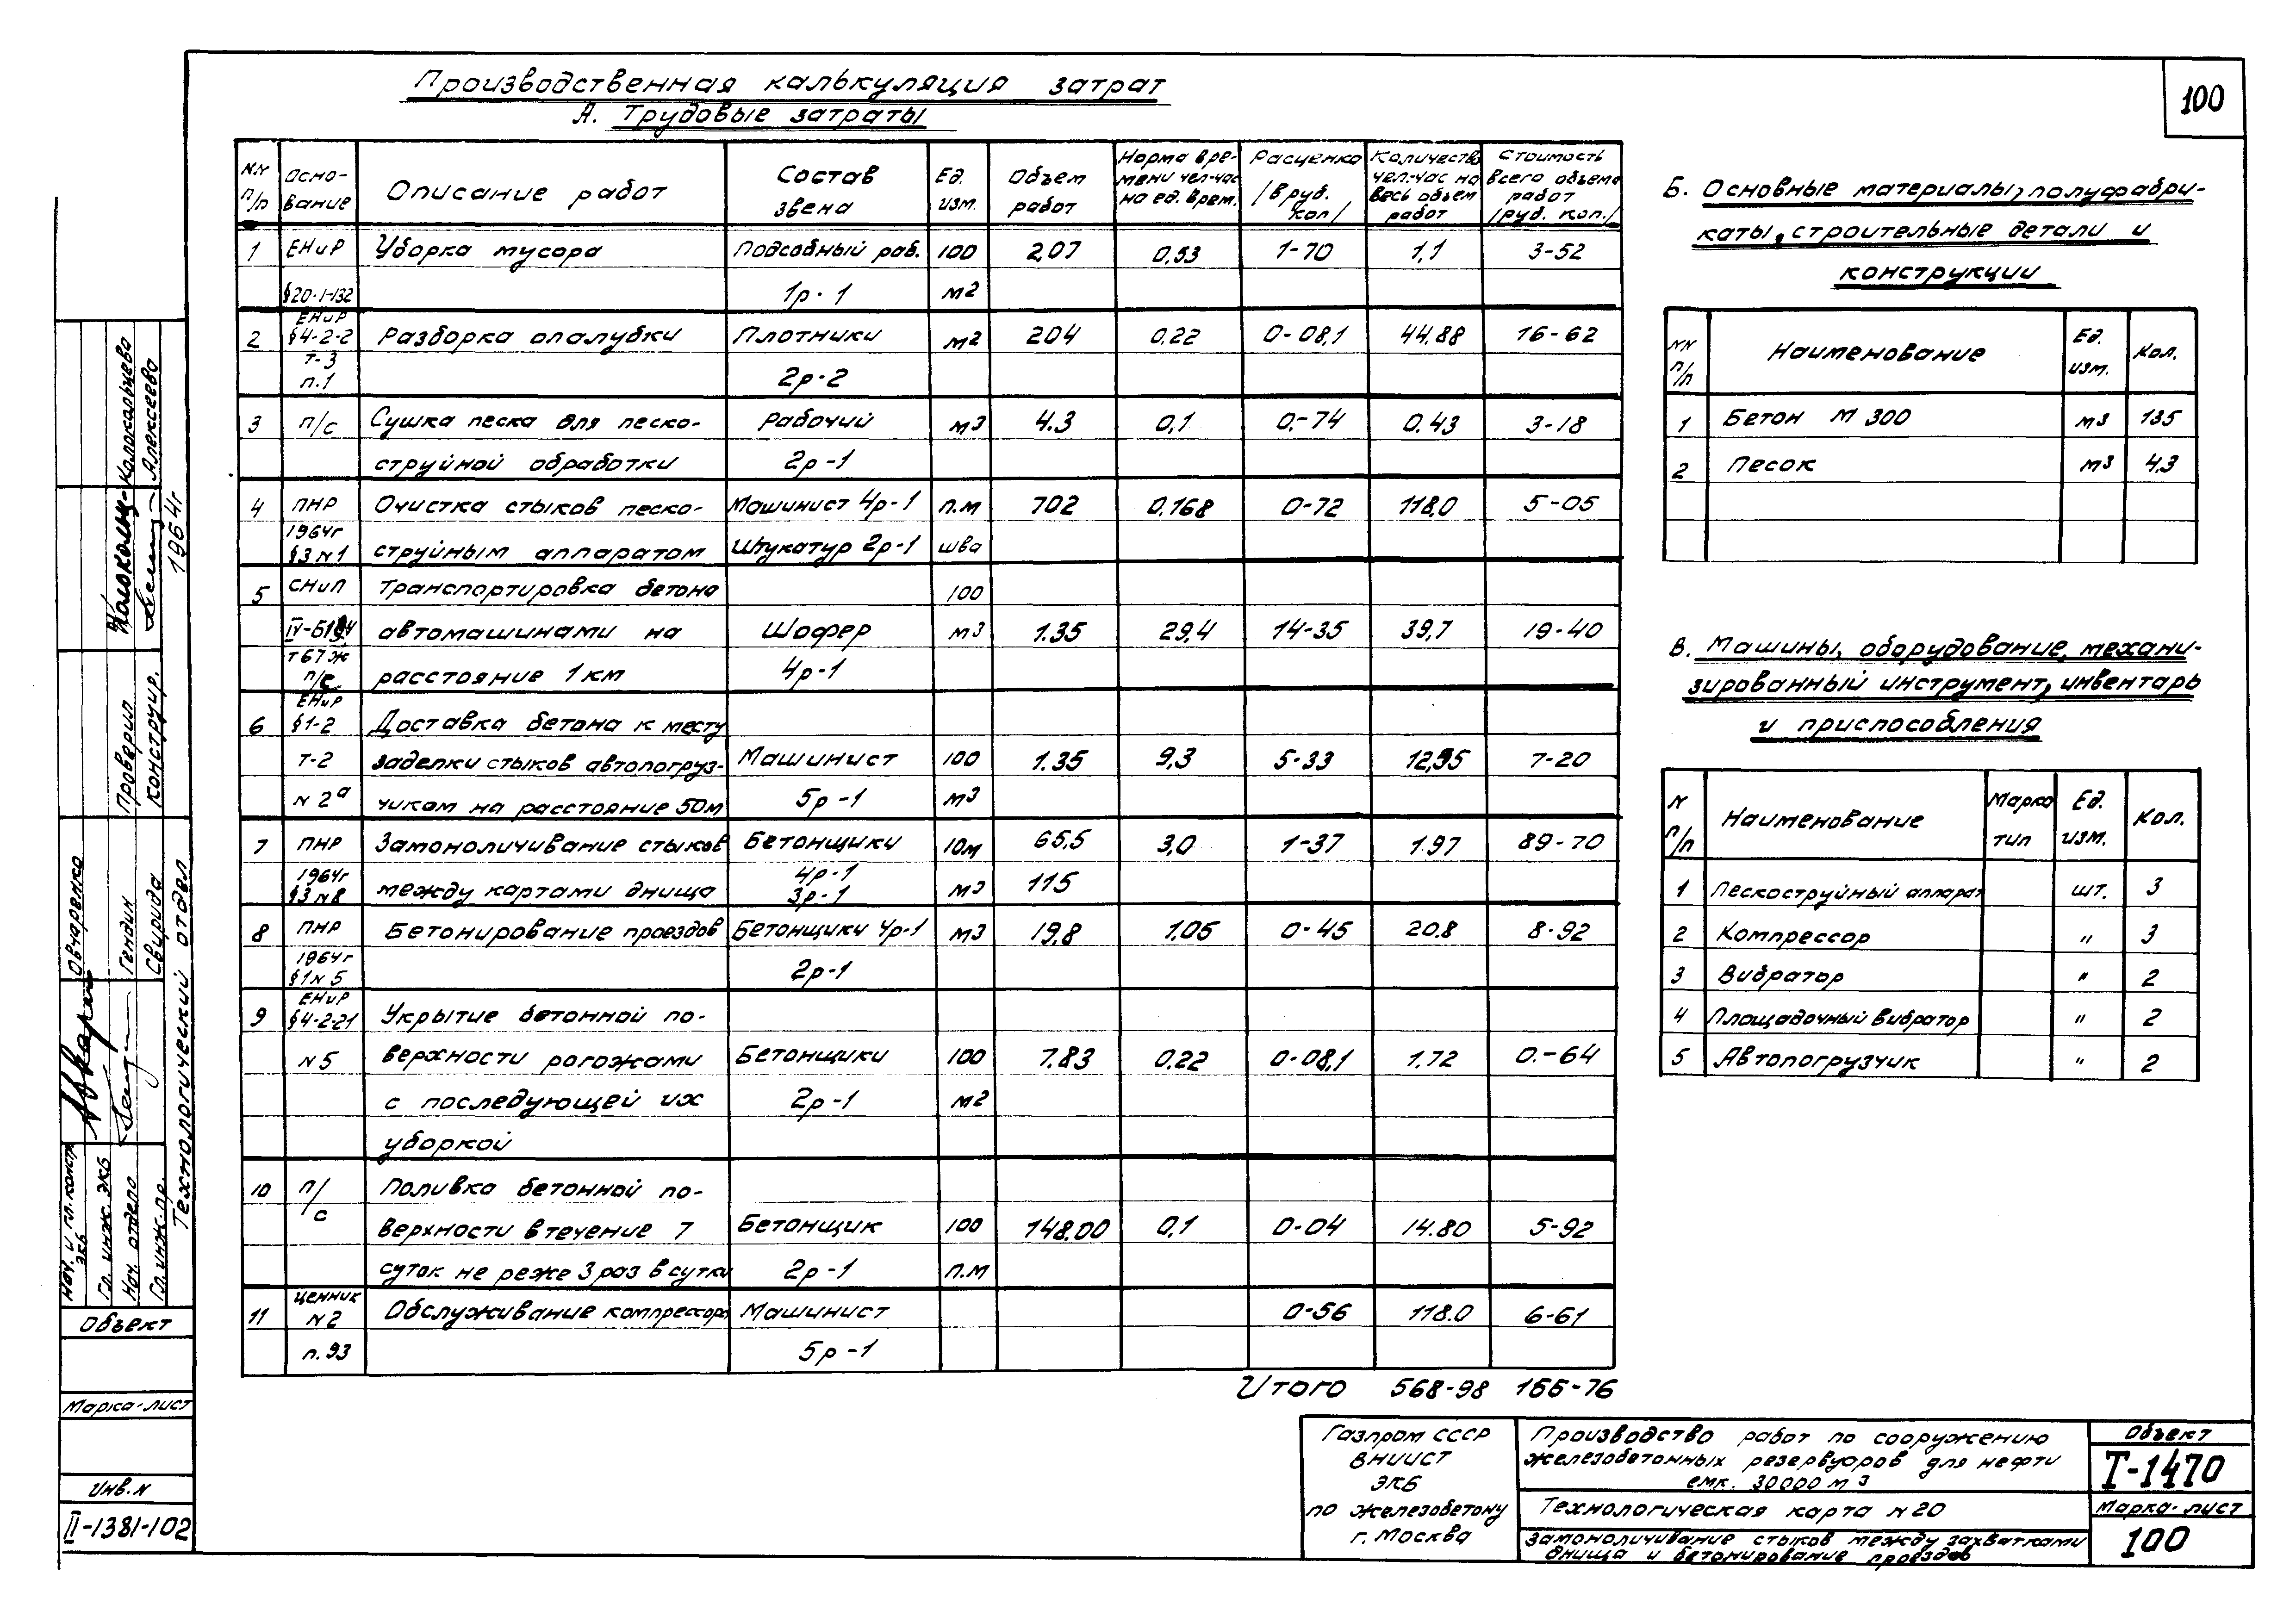 100
Производственная калькуляция затрат
А. Трудовые затраты
NN п/п | Осно-вание | Описание работ | Состав звена | Ед. изм. | Объем работ | Норма вре-мени чел-час на ед. врем. | Расценка /в руб. коп/ | Количество чел.-час на весь объем работ | Стоимость всего объема работ /руб. коп./
1 | ЕНиР §20-1-132 | Уборка мусора | Подсобный раб. 1р-1 | 100 м2 | 2,07 | 0,53 | 1-70 | 1,1 | 3-52
2 | ЕНиР §4-2-2 т-3 п.1 | Разборка опалубки | Плотники 2р-2 | м2 | 204 | 0.22 | 0-08,1 | 44.88 | 16-62
3 | п/с | Сушка песка для песко-струйной обработки | Рабочий 2р-1 | м3 | 4.3 | 0,1 | 0.-74 | 0.43 | 3-18
4 | ПНР 1964г §3 N1 | Очистка стыков песко-струйным аппаратом | Машинист 4р-1 Штукатур 2р-1 | п.м шва | 702 | 0,168 | 0-72 | 118,0 | 5-05
5 | СНиП т67ж п/с | Транспортировка бетона автомашинами на расстояние 1 км | Шофер 4р-1 | 100 м3 | 1.35 | 29,4 | 14-35 | 39,7 | 19-40
6 | ЕНиР §1-2 т-2 N 2а | Доставка бетона к месту заделки стыков автопогруз-чиком на расстояние 50м | Машинист 5р-1 | 100 м3 | 1.35 | 9,3 | 5-33 | 12,55 | 7-20
7 | ПНР 1964г §3 N8 | Замоноличивание стыков между картами днища | Бетонщики 4р-1 3р-1 | 10м м3 | 65,5 115 | 3,0 | 1-37 | 197 | 89-70
8 | ПНР 1964г §1 N 5 | Бетонирование проездов | Бетонщики 4р-1 2р-1 | м3 | 19,8 | 1.05 | 0-45 | 20.8 | 8-92
9 | ЕНиР §4-2-21 N5 | Укрытие бетонной по-верхности рогожами с последующей их уборкой | Бетонщики 2р-1 | 100 м2 | 7.83 | 0.22 | 0-08,1 | 1.72 | 0.-64
10 | п/с | Поливка бетонной по-верхности в течение 7 суток не реже 3 раз в сутки | Бетонщик 2р-1 | 100 п.м | 148.00 | 0,1 | 0-04 | 14.80 | 5-92
11 | ценник N2 п.93 | Обслуживание компрессора | Машинист 5р-1 | 0-56 | 118.0 | 6-61
Итого 568-98 155-76
Б. Основные материалы, полуфабри-
каты, строительные детали и
конструкции
NN п/п | Наименование | Ед. изм. | Кол.
1 | Бетон М 300 | м3 | 135
2 | Песок | м3 | 4.3
В. Машины, оборудование, механи-
зированный инструмент, инвентарь
и приспособления
N п/п | Наименование | Марка тип | Ед. изм. | Кол.
1 | Пескоструйный аппарат | шт. | 3
2 | Компрессор | " | 3
3 | Вибратор | " | 2
4 | Площадочный вибратор | " | 2
5 | Автопогрузчик | " | 2
Газпром СССР
ВНИИСТ
ЭКБ
по железобетону
г. Москва
Производство работ по сооружению
железобетонных резервуаров для нефти
емк. 30000 м3
Технологическая карта N 20
Замоноличивание стыков между захватками
днища и бетонирование проездов
Объект
Т-1470
Марка-лист
100
Колокольцева
Алексеева
1964г
Проверил
Конструир.
Овчаренко
Гендин
Свирида
Технологический отдел
Нач. и гл. констр. ЭКБ
Гл. инж. ЭКБ
Нач. отдела
Гл. инж. пр.
Объект
Марка-лист
Инв. N
II-1381-102